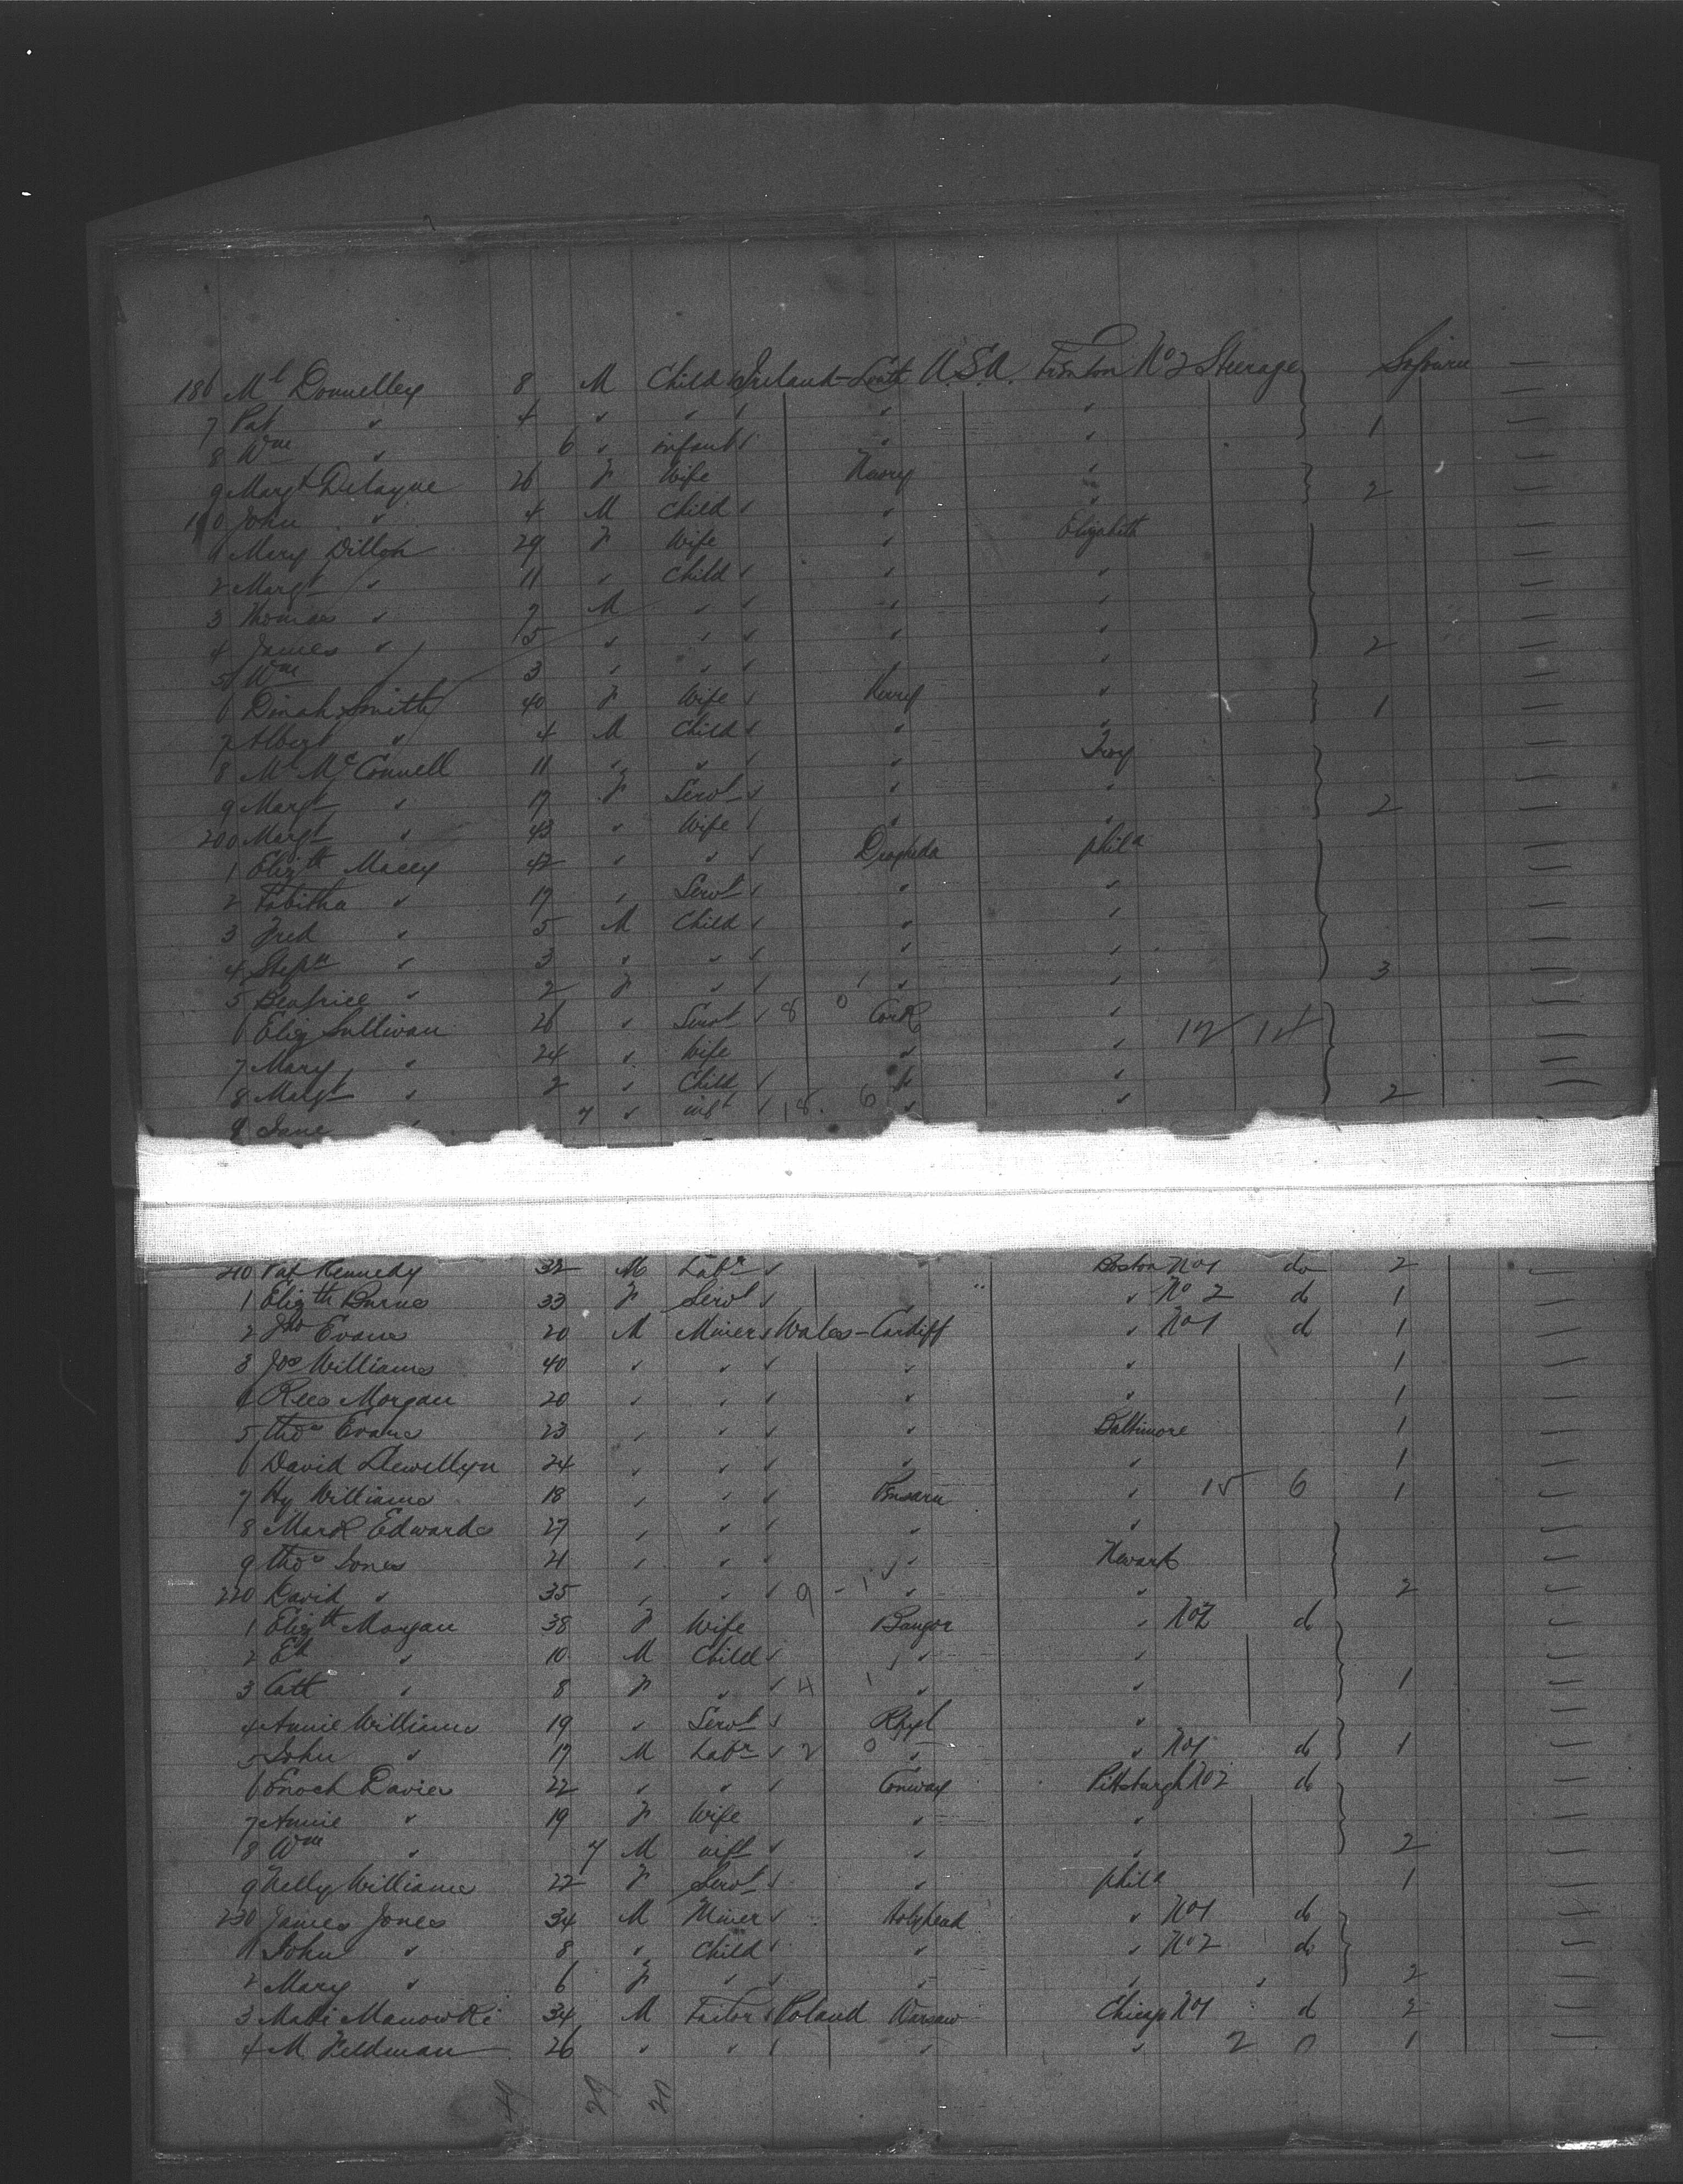 186 Ml Donnelley 8 M Child Ireland - Louth U.S.A. Trenton No 2 Steerage Sojourn —
7 Pat " 4 " " " " " 1 —
8 Wm " 6 " infant " " —
9 Margt Delayne 26 F Wife Newry " —
190 John " 4 M Child " " 2 —
1 Mary Dillon 29 F Wife " Elizabeth —
2 Margt " 11 " Child " " —
3 Thomas " 7 M " " " —
4 James " 5 " " " " —
5 Wm 3 " " " " 2 —
6 Dinah Smith 40 F Wife Newry " —
7 Albert " 4 M Child " " 1 —
8 Ml McConnell 11 " " " Troy —
9 Margt " 17 F Servt " " —
200 Margt " 43 " Wife " " 2 —
1 Elizth Macey 42 " " Drogheda Phila —
2 Tabitha " 17 " Servt " " —
3 Fred " 5 M Child " " —
4 Stepn " 3 " " " " —
5 Beatrice " 2 F " " " 3 —
6 Eliz Sullivan 26 " Servt 8 0 Cork " 12/14 —
7 Mary " 24 " Wife " " —
8 Margt " 2 " Child " " —
9 Jane " 7 " inft 18. 6 " " 2 —
210 Pat Kennedy 32 M Labr Boston No 1 do 2 —
1 Elizth Burns 33 F Servt " " No 2 do 1 —
2 Jno Evans 20 M Miner Wales - Cardiff " No 1 do 1 —
3 Jos Williams 40 " " " " 1 —
4 Rees Morgan 20 " " " " 1 —
5 Thos Evans 23 " " " Baltimore 1 —
6 David Llewellyn 24 " " " " 1 —
7 Hy Williams 18 " " " 15 6 1 —
8 Mark Edwards 27 " " " " —
9 Thos Jones 21 " " " Newark —
220 David " 35 " " 9 - 1 " " 2 —
1 Elizth Morgan 38 F Wife Bangor " No 2 do —
2 Ed " 10 M Child " " —
3 Cath " 8 F " 4 1 " " 1 —
4 Annie Williams 19 " Servt Rhyl " —
5 John " 17 M Labr 2 0 " " No 1 do 1 —
6 Enoch Davies 22 " " Conway Pittsburgh No 2 do —
7 Annie " 19 F Wife " " —
8 Wm " 7 M inft " " 2 —
9 Nelly Williams 22 F Servt " Phila 1 —
230 James Jones 34 M Miner Holyhead " No 1 do —
1 John " 8 " Child " " No 2 do —
2 Mary " 6 F " " " " 2 —
3 Mani Manowki 34 M Tailor Poland Warsaw Chicago No 1 do 2 —
4 M. Feldman 26 " " " " 2 0 1 —
49 29 20